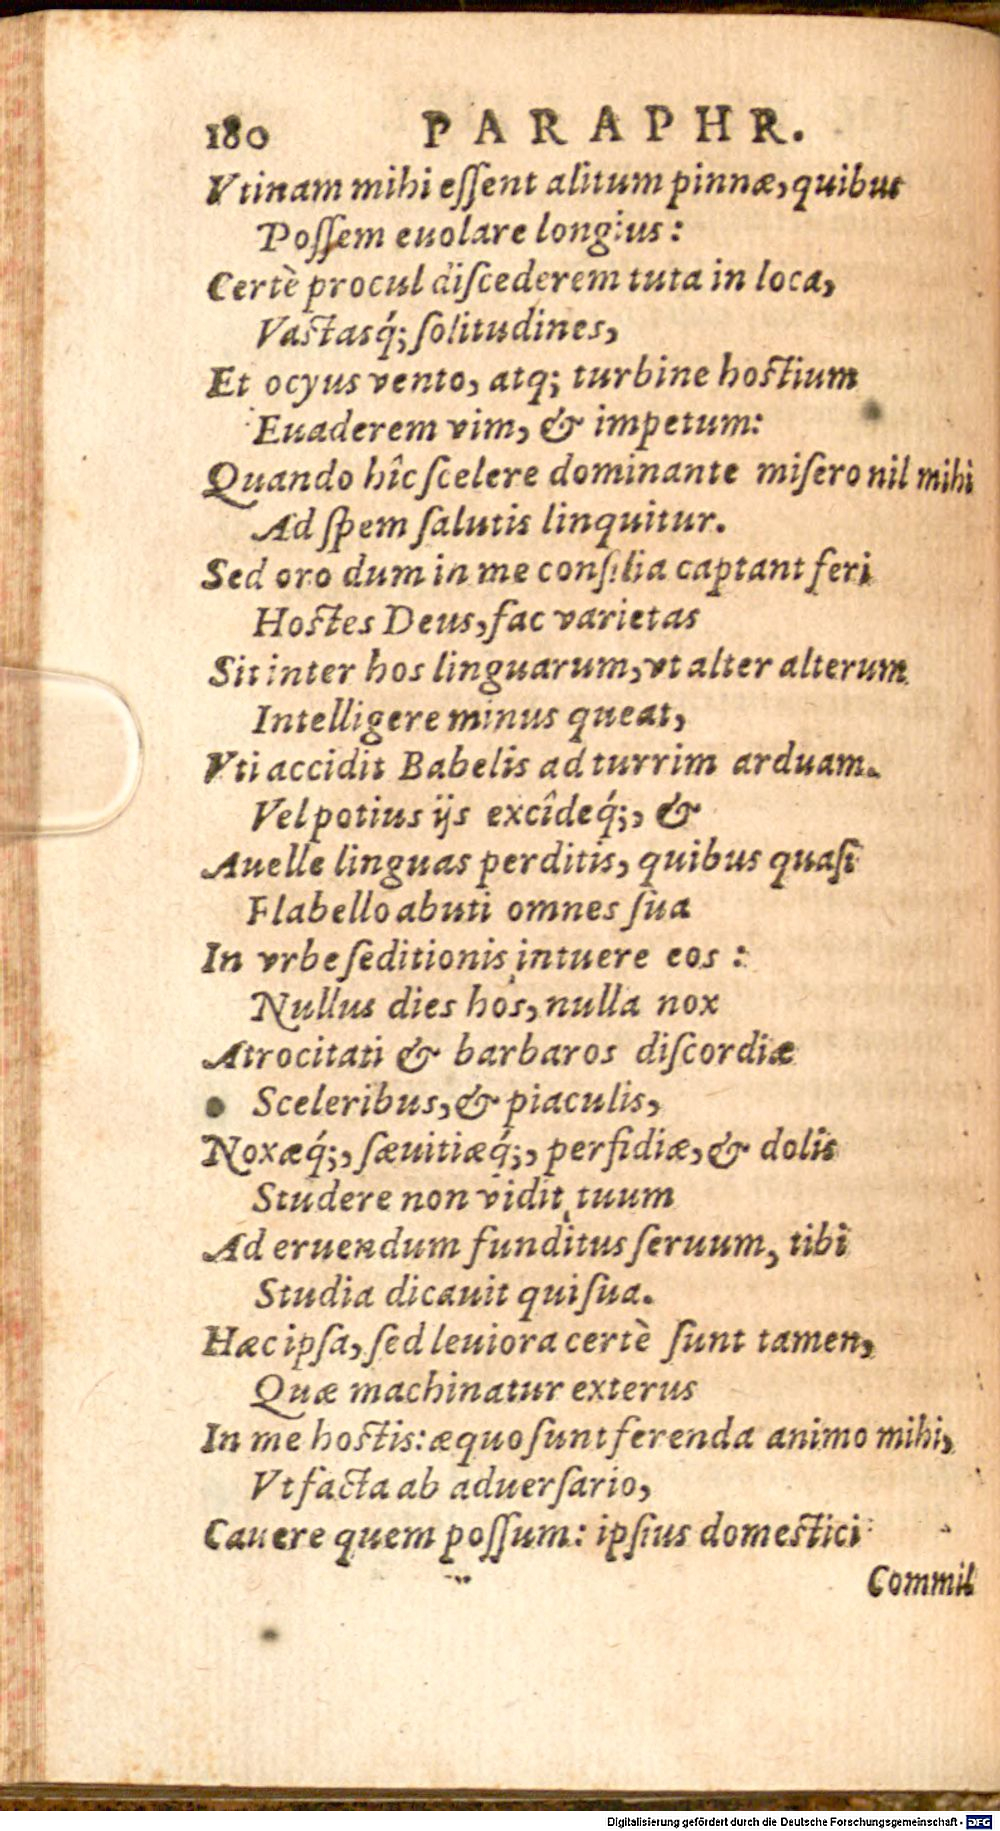 180 PARAPHR.
Vtinam mihi eſſent alitum pinnæ, quibus
Poſſem euolare longius:
Certè procul diſcederem tuta in loca,
Vaſtasq́; ſolitudines,
Et ocyus vento, atq; turbine hoſtium
Euaderem vim, & impetum:
Quando hîc ſcelere dominante miſero nil mihi
Ad ſpem ſalutis linquitur.
Sed oro dum in me conſilia captant feri
Hoſtes Deus, fac varietas
Sit inter hos linguarum, vt alter alterum
Intelligere minus queat,
Vti accidit Babelis ad turrim arduam.
Vel potius ijs excîdeq́;, &
Auelle linguas perditis, quibus quaſi
Flabello abuti omnes ſua
In vrbe ſeditionis intuere eos:
Nullus dies hos, nulla nox
Atrocitati & barbaros diſcordiæ
Sceleribus, & piaculis,
Noxæq́;, ſæuitiæq́;, perfidiæ, & dolis
Studere non vidit, tuum
Ad eruendum funditus ſeruum, tibi
Studia dicauit qui ſua.
Hæc ipſa, ſed leuiora certè ſunt tamen,
Quæ machinatur exterus
In me hoſtis: æquo ſunt ferenda animo mihi,
Vt facta ab aduerſario,
Cauere quem poſſum: ipſius domeſtici
Commil
Digitalisierung gefördert durch die Deutsche Forschungsgemeinschaft - DFG